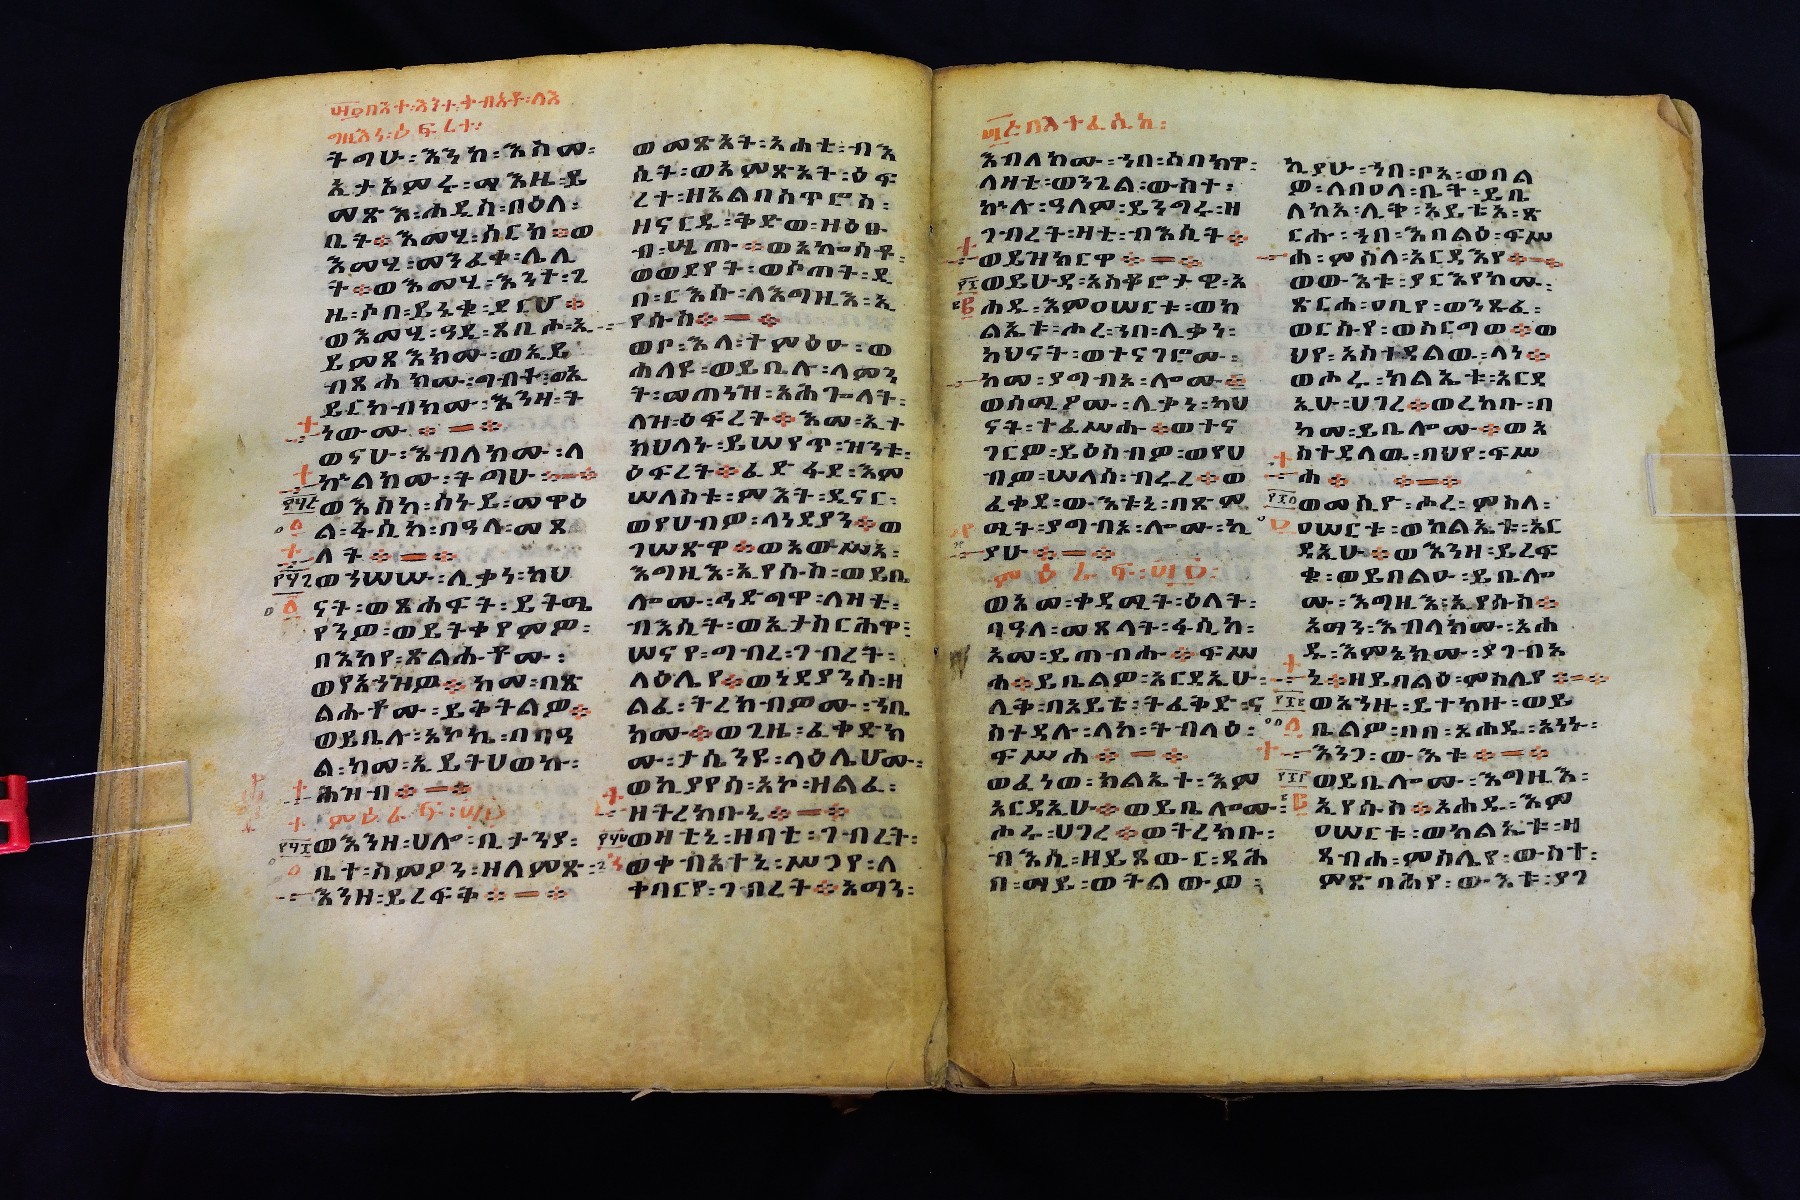 ፵፬በእተ፡እንተ፡ተብእቶ፡ለእ
ግዚእነ፡ዕፍረተ፡
ትግሁ፡እንከ፡እስመ፡
ኢታአምሩ፡ማእዜ፡ይ
መጽእ፡ሐዲስ፡በዕለ፡
ቢት፨እመሂ፡ሰርከ፨ወ
እመሂ፡መንፈቀ፡ሌሊ
ት፨ወእመሂ፡እንተ፡ጊ
ዜ፡ሶበ፡ይነቁ፡ደርሆ፨
ወእመሂ፡ዓዲ፡ጸቢሖ፡ኢ
ይመጽእክሙ፡ወኢይ
ብጻሕክሙ፡ግብት፡ወኢ
ይርከብክሙ፡እንዛ፡ት
ነውሙ፨—፨
ወናሁ፡እብለክሙ፡ለ
ኵልክሙ፡ትግሁ፨—፨
ወእስከ፡ሰኑይ፡መዋዕ
ል፡ፋሲካ፡በዓለ፡መጸ
ለት፨—፨
ወኀሠሡ፡ሊቃነ፡ካህ
ናት፡ወጸሐፍት፡ይትሜ
የንዎ፡ወይትቀየምዎ፡
በእከየ፡ጽልሑቶሙ፡
ወየአኀዝዎ፨ከመ፡በጽ
ልሑቶሙ፡ይቅትልዎ፨
ወይቤሉ፡አኮኬ፡በበዓ
ል፡ከመ፡ኢይትሀወክ፡
ሕዝብ፨—፨
ምዕራፍ፡፵፬
ወእንዘ፡ሀሎ፡ቢታንያ፡
ቤተ፡ስምዖን፡ዘለምጽ፡
እንዘ፡ይረፍቅ፨—፨
ወመጽአት፡አሐቲ፡ብእ
ሲት፡ወአምጽአት፡ዕፍ
ረተ፡ዘአልበስጥሮስ፡
ዘናርዱ፡ቅድው፡ዘዕፁ
ብ፡ሤጡ፨ወአክሞሰቶ፡
ወወደየት፡ወሶጠት፡ዲ
በ፡ርእሱ፡ለእግዚእ፡ኢ
የሱስ፨—፨
ወቦ፡እለ፡ተምዕዑ፡ወ
ሐለዩ፡ወይቤሉ፡ለምን
ት፡መጠነዝ፡አሕጐለት፡
ለዝ፡ዕፍረት፨እመ፡ኢት
ክህላኑ፡ይሠየጥ፡ዝንቱ፡
ዕፍረት፨ፈድፋደ፡እም
ሠለስቱ፡ምእት፡ዲናር፡
ወየሀብዎ፡ለነዳያን፨ወ
ገሠጽዋ፨ወአውሥአ፡
እግዚእ፡ኢየሱስ፡ወይቤ
ሎሙ፡ኃድግዋ፡ለዛቲ፡
ብእሲት፡ወኢታስርሕዋ፡
ሠናየ፡ግብረ፡ገብረት፡
ላዕሌየ፨ወነዳያንስ፡ዘ
ልፈ፡ትረክብዎሙ፡ኀቤ
ክሙ፨ወጊዜ፡ፈቀድክ
ሙ፡ታሴንዩ፡ላዕሌሆሙ፡
ወኪያየስ፡አኮ፡ዘልፈ፡
ዘትረክቡኒ፨—፨
ወዛቲኒ፡ዘባቲ፡ገብረት፡
ወቀብአተኒ፡ሥጋየ፡ለ
ተባርዮ፡ገብረት፨አማን፡
፵፭በእተፈሲካ፡
እብለክሙ፡ኀበ፡ሰበክዋ፡
ለዛቲ፡ወንጌል፡ውስተ፡
ኵሉ፡ዓለም፡ይንግሩ፡ዘ
ገብረት፡ዛቲ፡ብእሲት፨
ወይዝክርዋ፨—፨
ወይሁዳ፡አስቆሮታዊ፡አ
ሐዱ፡እምዐሠርቱ፡ወክ
ልኤቱ፡ሖረ፡ኀበ፡ሊቃነ፡
ካህናት፡ወተናገሮሙ፡
ከመ፡ያግብእ፡ሎሙ፨
ወሰሚዖሙ፡ሊቃነ፡ካህ
ናት፡ተፈሥሑ፨ወተና
ገርዎ፡ይዕስብዎ፡ወየሀ
ብዎ፡ሠላሰ፡ብሩረ፨ወ
ፈቀደ፡ውእቱኒ፡በጽም
ሚት፡ያግብእ፡ሎሙ፡ኪ
ያሁ፨—፨
ምዕራፍ፡፵፭፡
ወአመ፡ቀዳሚት፡ዕለት፡
ባዓለ፡መጸለት፡ፋሲካ፡
አመ፡ይጠብሑ፨ፍሥ
ሐ፨ይቤልዎ፡አርዳኢሁ፡
ሊቅ፡በአይቴ፡ትፈቅድ፡ና
ስተዳሉ፡ለከ፡ትብላዕ፡
ፍሥሐ፨—፨
ወፈነወ፡ክልኤተ፡እም
አርዳኢሁ፨ወይቤሎሙ፡
ሖሩ፡ሀገረ፨ወትረክቡ፡
ብእሴ፡ዘይጸውር፡ዳሕ
በ፡ማይ፡ወትልውዎ፡
ኪያሁ፡ኀበ፡ቦአ፡ወበል
ዎ፡ለበዐለ፡ቤት፡ይቤ
ለከአ፡ሊቅ፡አይቴአ፡ጽ
ርሑ፡ኀበ፡እበልዕ፡ፍሥ
ሐ፡ምስለ፡አርዳእየ፨—፨
ወውእቱ፡ያርእየክሙ፡
ጽርሐ፡ዐቢየ፡ወንጹፈ፡
ወርሱየ፡ወስርግወ፨ወ
ህየ፡አስተዳልው፡ለነ፨
ወሖሩ፡ክልኤቱ፡አርዳ
ኢሁ፡ሀገረ፨ወረከቡ፡በ
ከመ፡ይቤሎሙ፨ወአ
ስተዳለዉ፡በህየ፡ፍሥ
ሐ፨ ፨—፨
ወመስዮ፡ሖረ፡ምስለ፡
ዐሠርቱ፡ወክልኤቱ፡አር
ዳኢሁ፨ወእንዘ፡ይረፍ
ቁ፡ወይበልዑ፡ይቤሎ
ሙ፡እግዚእ፡ኢየሱስ፨
አማን፡እብለክሙ፡አሐ
ዱ፡እምኔክሙ፡ያገብአ
ኒ፨ዘይበልዕ፡ምስሌየ፨—፨
ወአኀዙ፡ይተክዙ፡ወይ
ቤልዎ፡በበ፡አሐዱ፡አንኑ፡
እንጋ፡ውእቱ፨—፨
ወይቤሎሙ፡እግዚእ፡
ኢየሱስ፨አሐዱ፡እም
ዐሠርቱ፡ወክልኤቱ፡ዘ
ጸብሐ፡ምስሌየ፡ውስተ፡
ምጽባሕየ፡ውእቱ፡ያገ